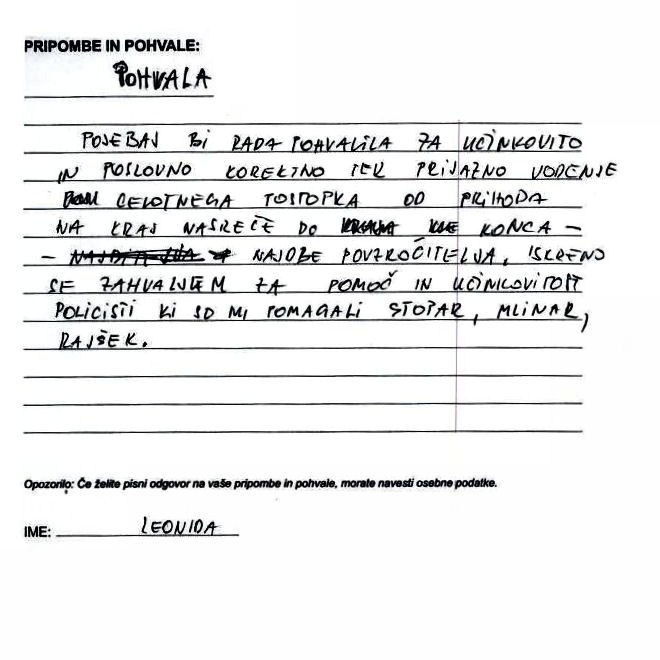 PRIPOMBE IN POHVALE:
POHVALA
POSEBAJ BI RADA POHVALILA ZA UČINKOVITO
IN POSLOVNO KOREKTNO TER PRIJAZNO VODENJE
CELOTNEGA POSTOPKA OD PRIHODA
NA KRAJ NASREČE DO KONCA –
– NAJDBE POVZROČITELJA, ISKRENO
SE ZAHVALJUJEM ZA POMOČ IN UČINKOVITOST
POLICISTI KI SO MI POMAGALI STOPAR, MLINAR,
RAJŠEK.
Opozorilo: Če želite pisni odgovor na vaše pripombe in pohvale, morate navesti osebne podatke.
IME: LEONIDA